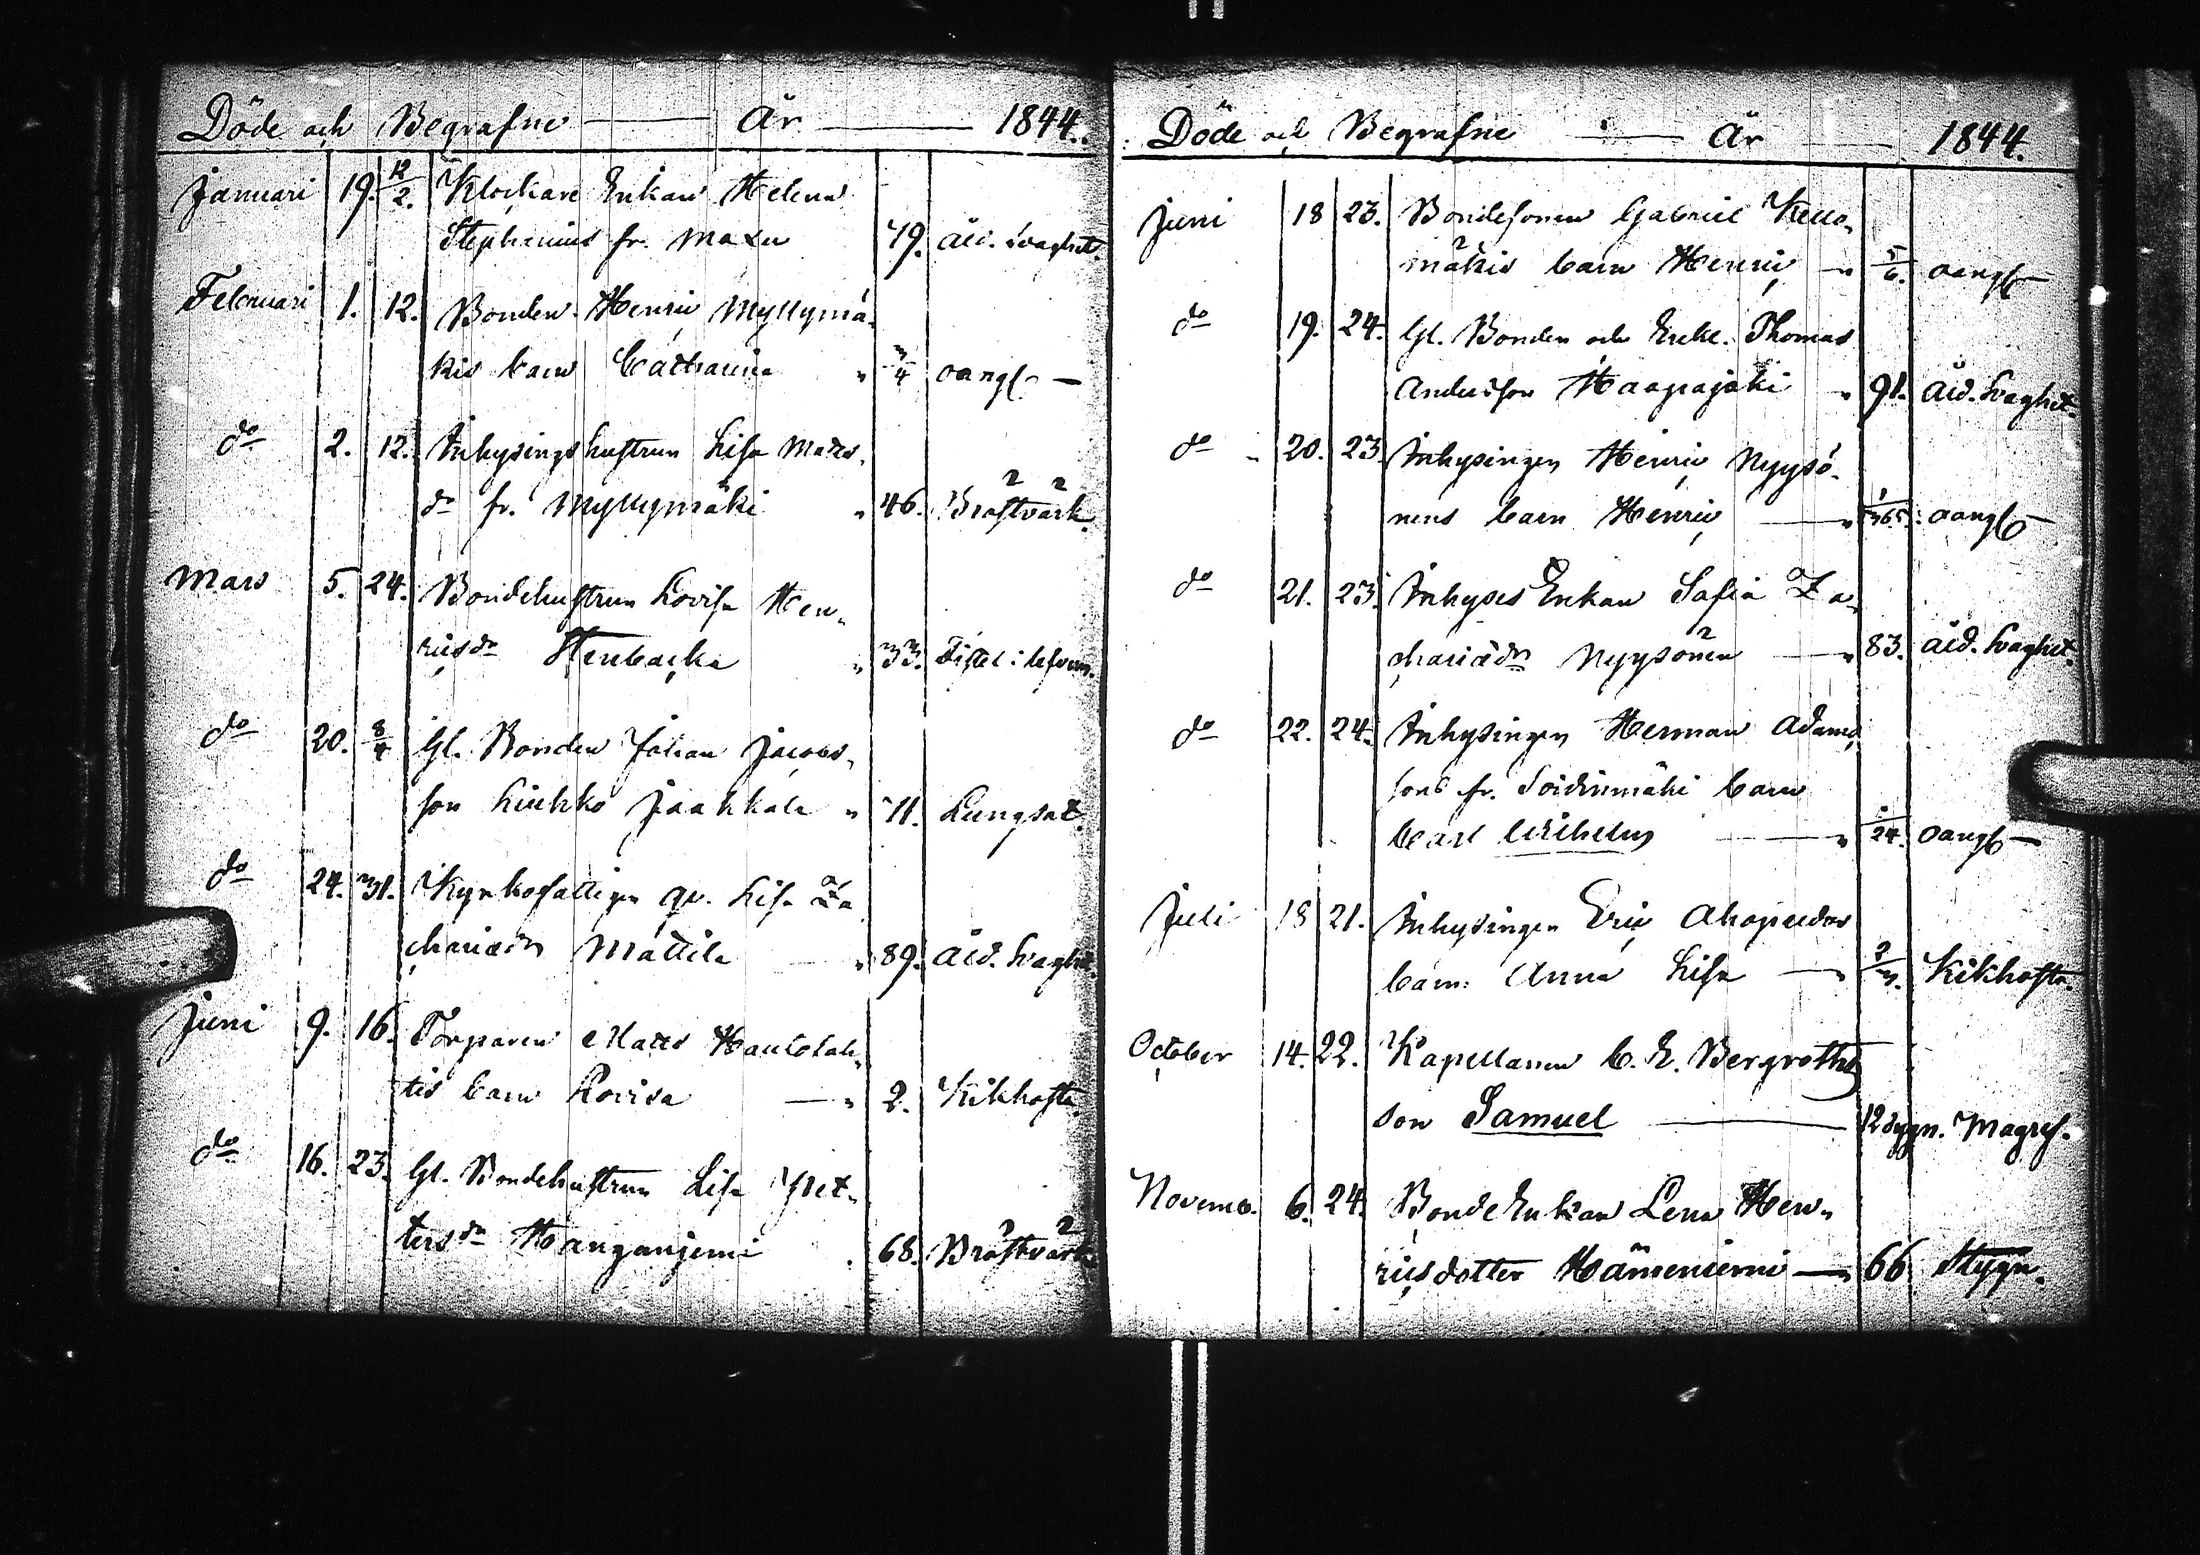 Döde och Begrafne — År — 1844.
Januari 19. 12/2. Klockare Enkan Helena
Stephenius fr. Maxu 79. Åld. svaghet.
Februari 1. 12. Bonden Henric Myllymä-
kis barn Catharina " 3/4 oangf. —
do 2. 12. Inhysings hustrun Lisa Matts-
dr fr. Myllymäki " 46. Bröstvärk.
Mars 5. 24. Bondehustrun Lovisa Hen-
ricsdr Stenbacka " 33. Fistel i lefvern.
do 20. 8/4 Gl. Bonden Johan Jacobs-
son Liukko Jaakkola " 71. Lungsot.
do 24. 31. Kyrkofattigen qv. Lisa Za
chariædr Mattila — " 89. Åld. Svaghet.
Juni 9. 16. Torparen Matts Hautolah-
tis barn Lovisa — " 2. Kikhosta
do 16. 23. Gl. Bondehustrun Lisa Pet-
tersdr Hanganjemi . 68. Bröstvärk.
Döde och Begrafne — År — 1844.
Juni 18 23. Bondesonen Gabriel Kello-
mäkis barn Henric — " 5/6. oangf —
do 19. 24. Gl. Bonden och Enkl. Thomas
Andersson Haapajoki " 91. Åld. Svaghet.
do " 20. 23. Inhysingen Henric Nyysö-
nens barn Henric — " 1/365. oangf —
do 21. 23. Inhyses Enkan Safia Za-
chariædr Nyysönen — " 83. Åld. Svaghet.
do 22. 24. Inhysingen Herman Adams-
sons fr. Soidinmäki barn
Carl Wilhelm — " 1/24. oangf —
Juli 18 21. Inhysingen Eric Ahopeldos
barn: Anna Lisa — " Kikhosta.
October 14. 22. Kapellanen C. E. Bergroths
son Samuel — 12 dygn. Magref.
Novemb. 6. 24. Bonde Enkan Lena Hen-
ricsdotter Hämeniemi — " 66 Stygn.